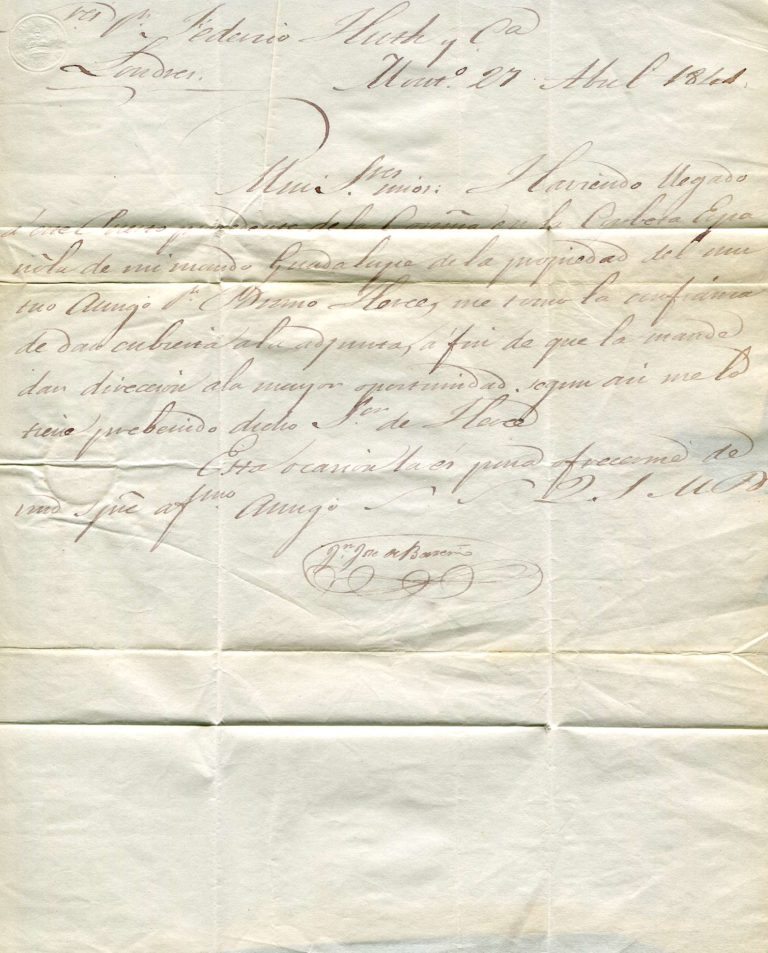 Sres Dn Federico Huth y Ca
Londres. Monto. 27 Abril 1841.
Mui Sres mios: Haviendo llegado
á este Puerto prosedente de la Coruña en la Corbeta Espa
ñóla de mi mando Guadalupe de la propiedad del mu
tuo Amigo Dn Bruno Herce, me tomo la confianza
de dar cubierta ala adjunta, á fin de que la mande
dar direccion ala mayor oportunidad, segun asi me lo
tiene prebenido dicho Sor de Herce
Esta ocasion la és para ofrecerme de
afmo Amigo S S Q S M B
Jn Jose de